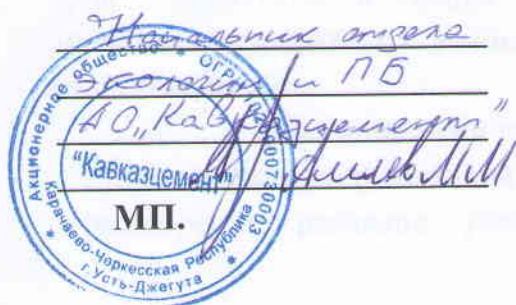 Начальник отдела
экологии и ПБ
АО „Кавказцемент”
М М
МП.
Акционерное общество * ОГРН
00730003
"Кавказцемент"
Карачаево-Черкесская Республика
г. Усть-Джегута